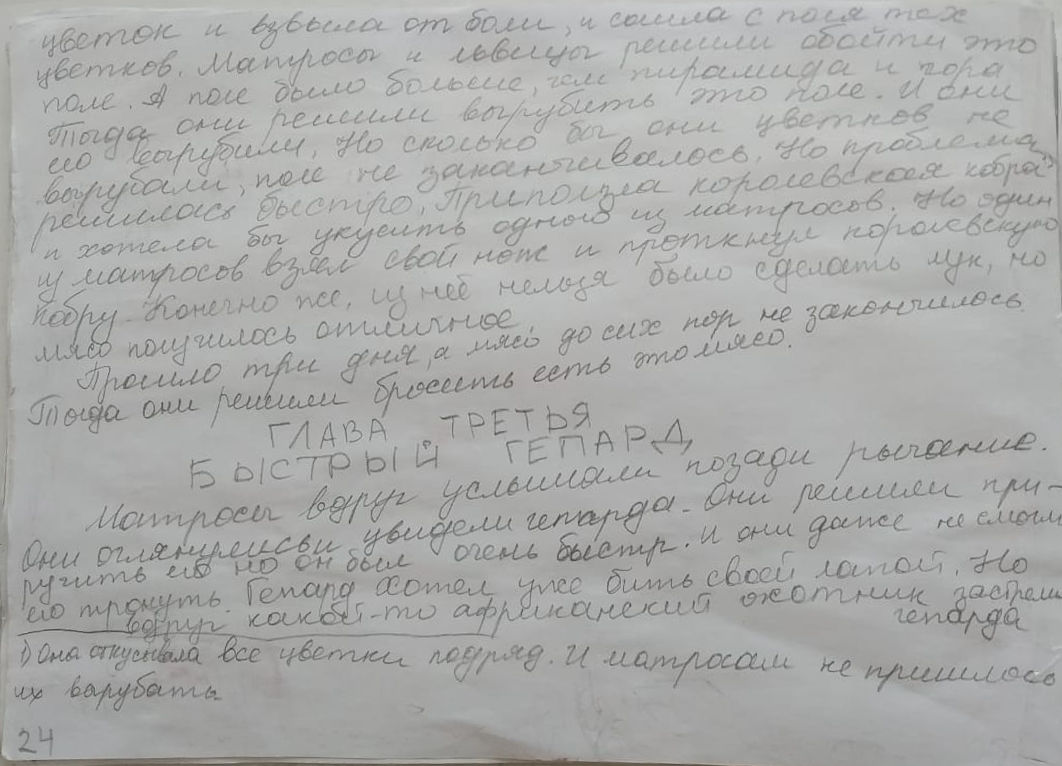 цветок и взвыла от боли, и сошла с поля тех
цветков. Матросы и львицы решили обойти это
поле. А поле было больше, чем пирамида и гора
Тогда они решили вырубить это поле. И они
его вырубили. Но сколько бы они цветков не
вырубали, поле не заканчивалось. Но проблема
решилась быстро. Приползла королевская кобра1)
и хотела бы укусить одного из матросов. Но один
из матросов взял свой нож и проткнул королевскую
кобру. Конечно же, из неё нельзя было сделать лук, но
мясо получилось отличное.
Прошло три дня, а мясо до сих пор не закончилось.
Тогда они решили бросить есть это мясо.
ГЛАВА ТРЕТЬЯ
БЫСТРЫЙ ГЕПАРД
Матросы вдруг услышали позади рычание.
Они оглянулись и увидели гепарда. Они решили при-
ручить его но он был очень быстр. И они даже не смогли
его тронуть. Гепард хотел уже бить своей лапой. Но
вдруг какой-то африканский охотник застрелил
гепарда
1) Она откусывала все цветки подряд. И матросам не пришлось
их варубать.
24